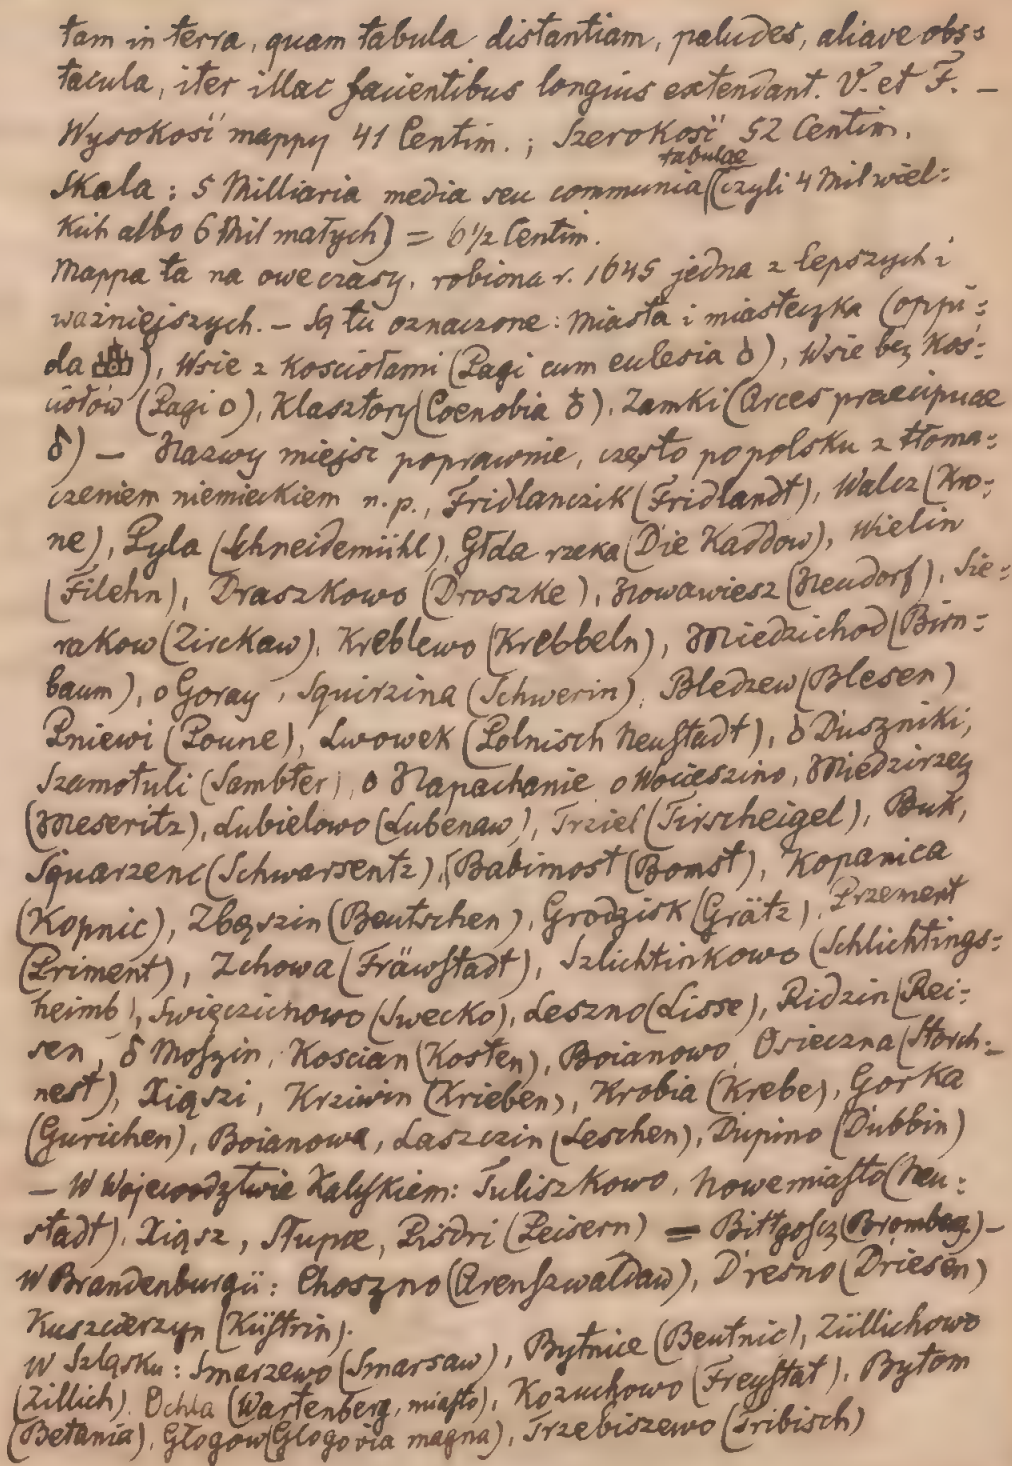 tam in terra, quam tabula distantiam, paludes, aliave obs=
tacula, iter illac facientibus longius extendant. V. et F. –
Wysokość mappy 41 Centim. ; Szerokość 52 Centim.
tabulae
Skala : 5 Milliaria media seu communia (czyli 4 Mil wiel=
kich albo 6 Mil małych) = 6 1/2 Centim.
Mappa ta na owe czasy, robiona r. 1645 jedna z lepszych i
ważniejszych. – Są tu oznaczone: Miasta i miasteczka (oppi=
da), Wsie z kościołami (Pagi cum eclesia ♁), Wsie bez koś=
ciołów (Pagi o), Klasztory (Coenobia ♁), Zamki (Arces praecipuae
♁) — Nazwy miejsc poprawnie, często po polsku z tłoma=
czeniem niemieckiem n.p., Fridlanczik (Fridlandt), Walcz (Kro=
ne), Pyla (Schneidemühl), Głda rzeka (Die Kaddow), Wielin
(Filehn), Draszkowo (Droszke), Nowawiesz (Neudorf), Sie=
rakow (Zirckaw), Kreblewo (Krebbeln), Miedzichod (Birn=
baum), o Goray, Squirzina (Schwerin), Bledzew (Blesen)
Pniewi (Poune), Lwowek (Polnisch Neustadt), ♁ Duszniki,
Szamotuli (Sambter), o Napachanie o Wocieszino, Miedzirzecz
(Meseritz), Lubielowo (Lubenaw), Trziel (Tirscheigel), Buk,
Squarzenc (Schwarsentz), Babimost (Bomst), Kopanica
(Kopnic), Zbąszin (Bentschen), Grodzisk (Grätz), Przement
(Priment), Zchowa (Fräwstadt), Szlichtinkowo (Schlichtings=
heimb), Swięczichowo (Swecko), Leszno (Lisse), Ridzin (Rei=
sen, ♁ Moszin, Koscian (Kosten), Boianowo, Osieczna (Storch=
nest), Xiąszi, Krziwin (Krieben), Krobia (Krebe), Gorka
(Gurichen), Boianowa, Laszczin (Leschen), Dupino (Dubbin)
— W Wojewodztwie Kaliskiem: Tuliszkowo, Nowemiasto (Neu=
stadt), Xiąsz, Słupce, Pisdri (Peisern) = Bittgoscz (Bromberg) –
W Brandenburgii: Choszno (Arenszwaldaw), Dresno (Driesen)
Kuszcierzyn (Küstrin).
W Szląsku: Smarzewo (Smarsaw), Bytnice (Beutnic), Züllichowo
(Zillich), Ochla (Wartenberg, miasto), Kozuchowo (Freystat), Bytom
(Betania), Głogow (Glogovia magna), Trzebiszewo (Tribisch)